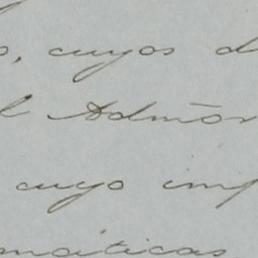 o, cuyos d
l Admōr
cuyo imp
máticas